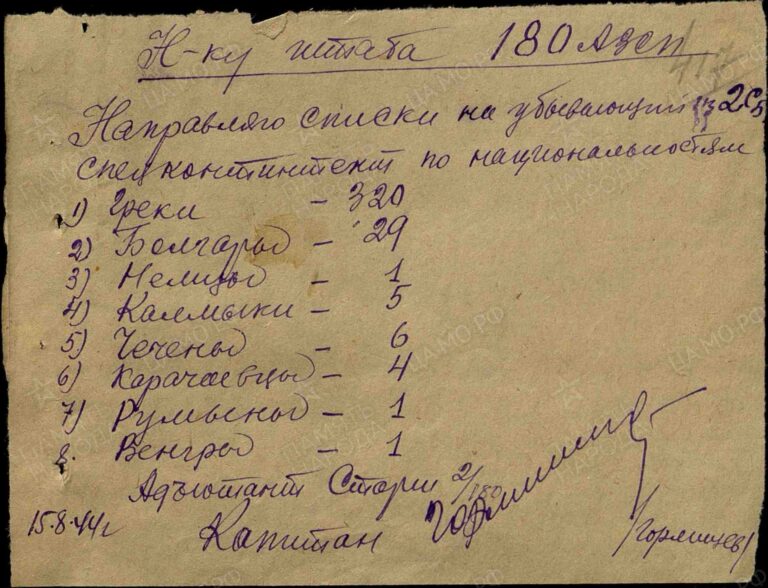 Н-ку штаба 180 Азсп
417
Направляю списки на убывающий из 2сб
спецконтингент по национальностям
1) Греки – 320
2) Болгары – 29
3) Немцы – 1
4) Калмыки – 5
5) Чечены – 6
6) Карачаевцы – 4
7) Румыны – 1
8. Венгры – 1
Адъютант Старш 2/180
15.8.44г Капитан
/Горлищев/